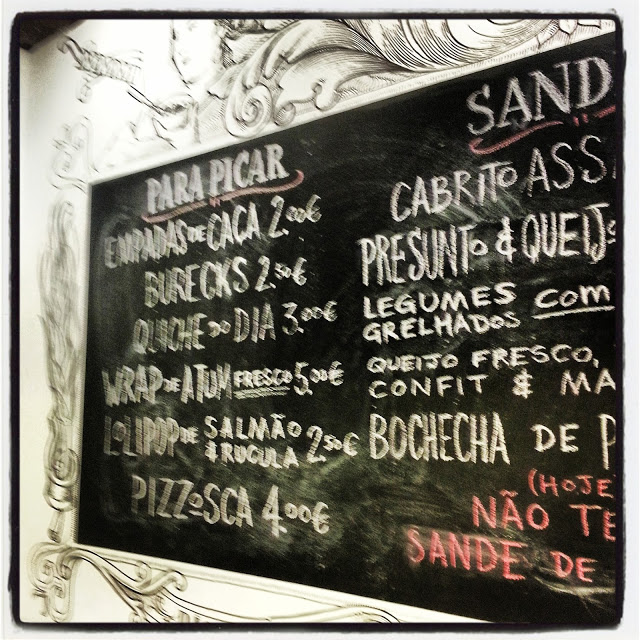 PARA PICAR
EMPADAS DE CAÇA 2.00€
BURECKS 2.50€
QUICHE DO DIA 3.00€
WRAP DE ATUM FRESCO 5.00€
LOLIPOP DE SALMÃO
& RUCULA 2.50€
PIZZOSCA 4.00€
SAND
CABRITO ASS
PRESUNTO & QUEIJ
LEGUMES COM
GRELHADOS
QUEIJO FRESCO,
CONFIT & MA
BOCHECHA DE P
(HOJE
NÃO TE
SANDE DE